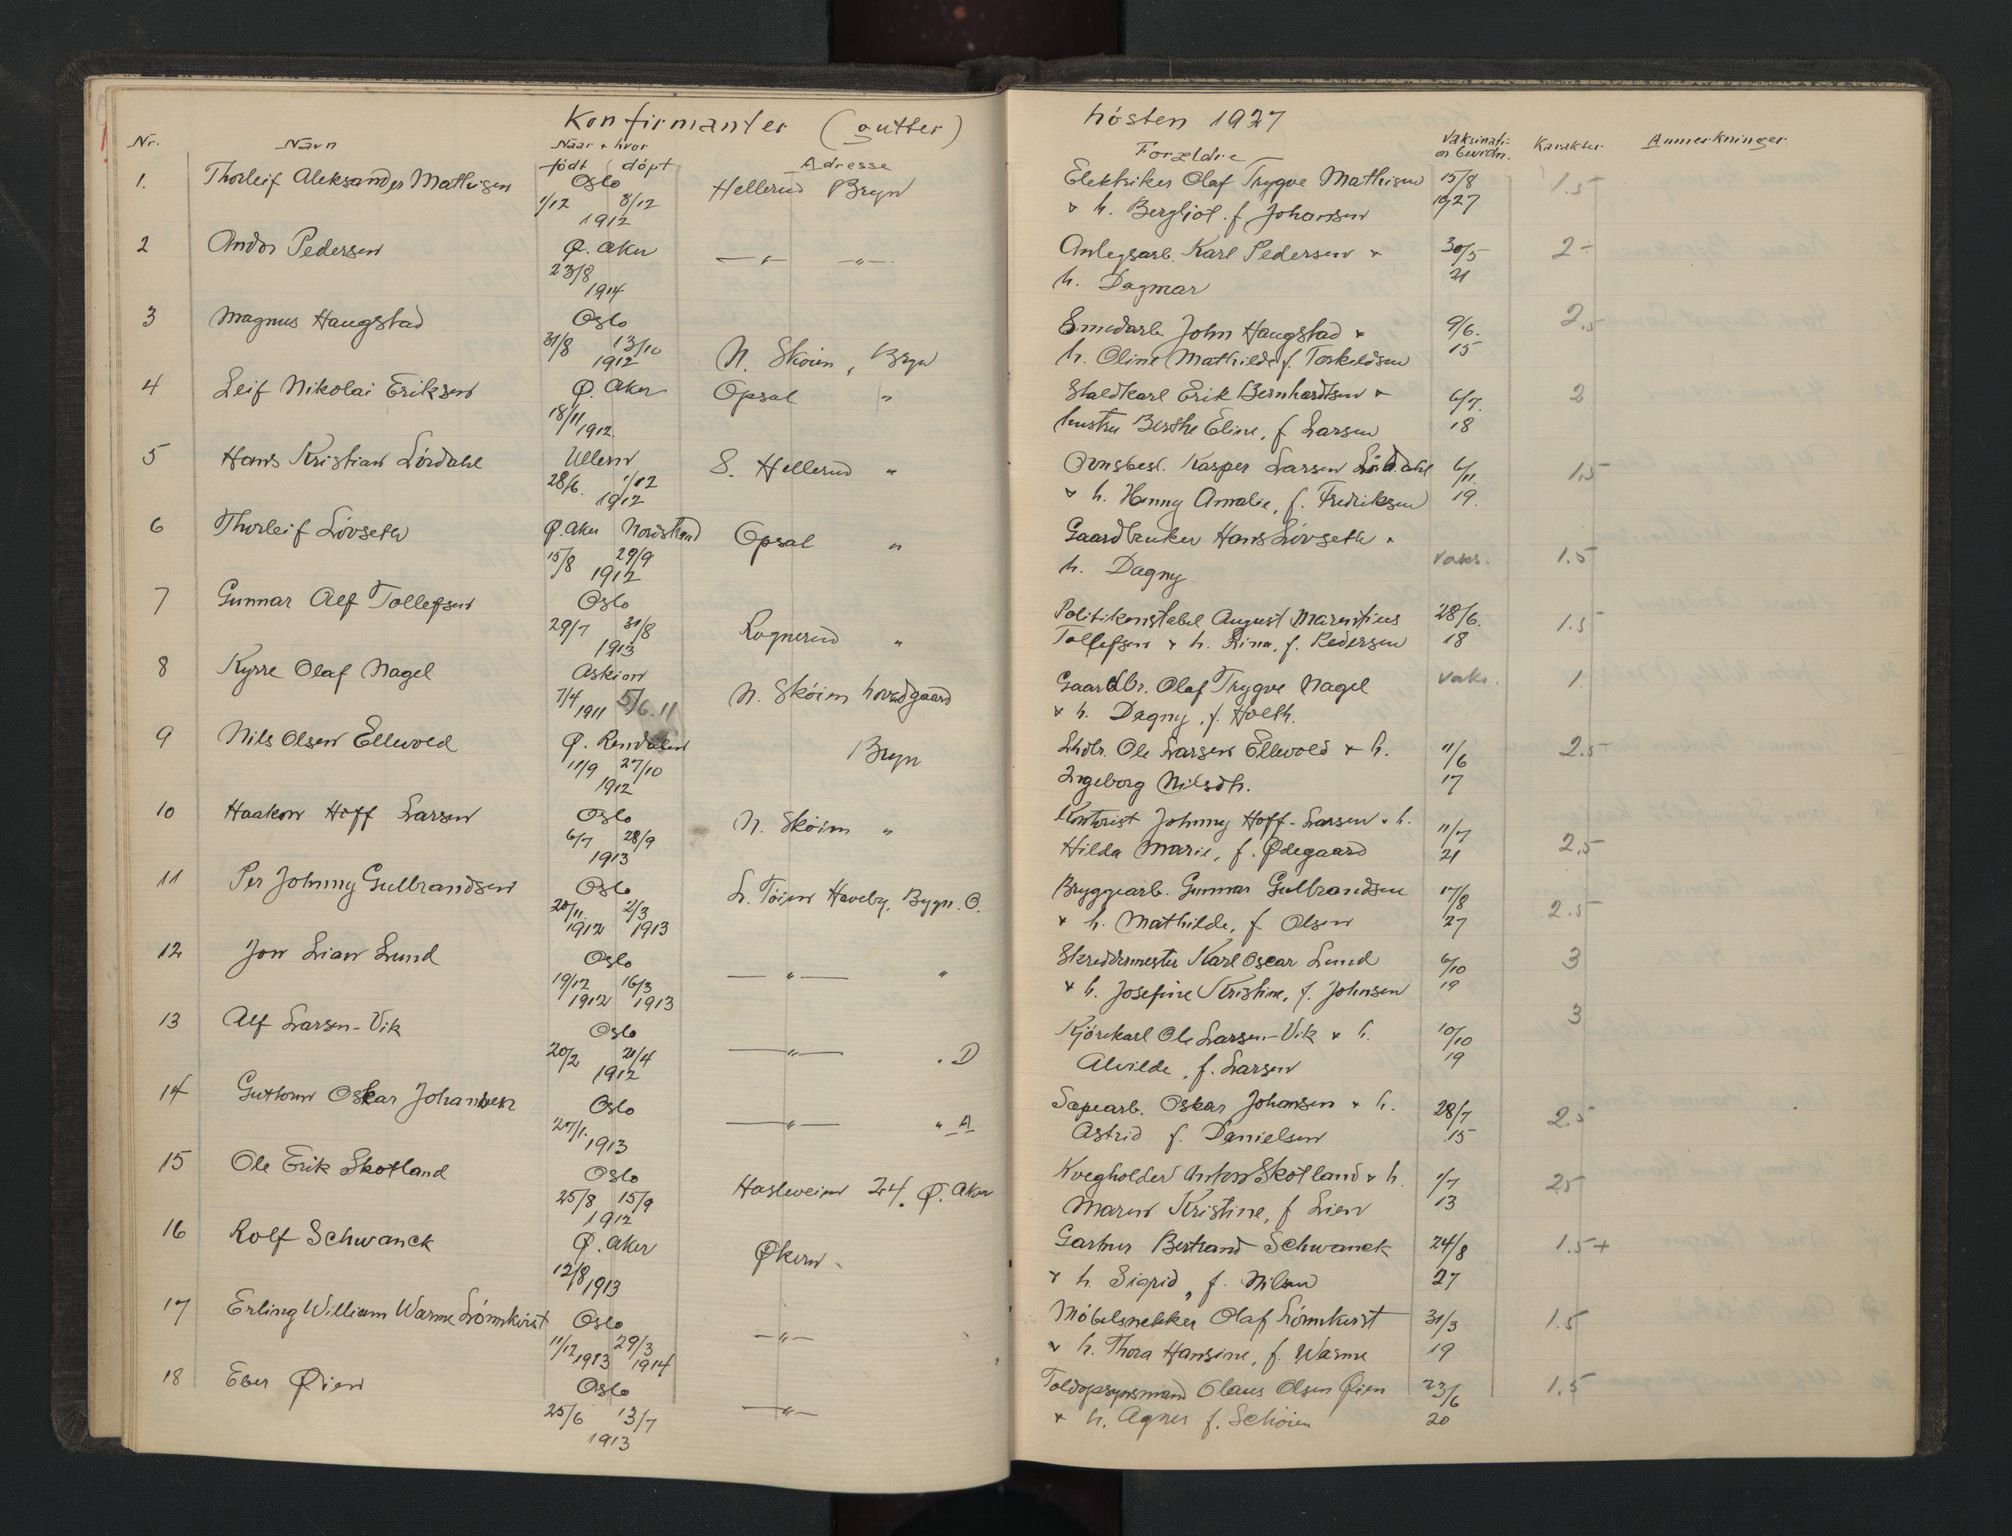 Konfirmanter (gutter) høsten 1927
Nr. Navn Naar + hvor født døpt Adresse Forældre Vaksinati- on bevidn. Karakter Anmerkninger
1. Thorleif Aleksander Mathisen Oslo Hellerud Bryn Elektriker Olaf Trygve Mathisen 15/8 1.5
1/12 8/12 + h. Bergliot f. Johansen 1927
1912
2 Andor Pedersen Ø. Aker —"— —"— Anlegsarb. Karl Pedersen + 30/5 2-
23/8 h. Dagmar 21
1914
3 Magnus Haugstad Oslo Smedarb. John Haugstad + 9/6. 2.5
31/8 13/10 N. Skøien, Bryn h. Oline Mathilde f. Torkildsen 15
1912
4 Leif Nikolai Eriksen Ø. Aker Opsal " Staldkarl Erik Bernhardtsen + 6/7. 2
18/11 1912 hustru Berthe Eline, f. Larsen 18
5 Hans Kristian Lørdahl Ullern S. Hellerud " Kasper Larsen Lørdahl 6/11. 1.5
28/6. 1/12 + h. Henny Amalie, f. Fredriksen 19.
1912
6 Thorleif Løvseth Ø. Aker Nordstrand Opsal " Gaardbruker Hans Løvseth + vaks. 1.5
15/8 29/9 h. Dagny
1912
7 Gunnar Alf Tollefsen Oslo Politikonstabel August Marentius 28/6. 1.5
29/7 31/8 Rognerud " Tollefsen + h. Lina, f. Pedersen 18
1913
8 Kyrre Olaf Nagel Askim N. Skøien hovedgaard Gaardbr. Olaf Trygve Nagel vaks. 1
7/4 1911 5/6.11 + h. Dagny, f. Holth.
9 Nils Olsen Ellevold Ø. Rendalen Bryn Ole Larsen Ellevold + h. 11/6 2.5
11/9 27/10 Ingeborg Nilsdtr. 17
1912
10 Haakon Hoff Larsen Oslo N. Skøien " Kontorist Johnny Hoff-Larsen + h. 11/7 2.5
6/7 28/9 Hilda Marie, f. Ødegaard 21
1913
11 Per Johnny Gulbrandsen Oslo L. Tøien Haveby, Bygn. C. Bryggearb. Gunnar Gulbrandsen 17/8 2.5
20/11. 2/3 + h. Mathilde, f. Olsen 27
1912 1913
12 Jon Lian Lund Oslo —"— " Skreddermester Karl Oscar Lund 6/10 3
19/12 16/3 + h. Josefine Kristine, f. Johnsen 19
1912 1913
13 Alf Larsen-Vik Oslo —"— " D Kjørekarl Ole Larsen-Vik + h. 10/10 3
20/2 21/4 Alvilde, f. Larsen 19
1912
14 Guthorm Oskar Johansen Oslo —"— " A Sæpearb. Oskar Johansen + h. 28/7 2.5
27/1. 1913 Astrid f. Danielsen 15
15 Ole Erik Skotland Oslo Hasleveien 24. Ø. Aker Kvegholder Anton Skotland + h. 1/7 2.5
25/8 15/9 Maren Kristine, f. Lien 13
1912
16 Rolf Schwanck Ø. Aker Økern Gartner Bertrand Schwanck 24/8 1.5+
12/8 1913 + h. Sigrid, f. Nilsen 27
17 Erling William Warme Lønnkvist Oslo —"— Møbelsnekker Olaf Lønnkvist 31/3 1.5
11/12 1913 29/3 1914 + h. Thora Hansine, f. Warme 19
18 Eber Øien Oslo —"— Toldopsynsmand Olaus Olsen Øien 23/6 1.5
25/6 13/7 + h. Agnes f. Schøien 20
1913